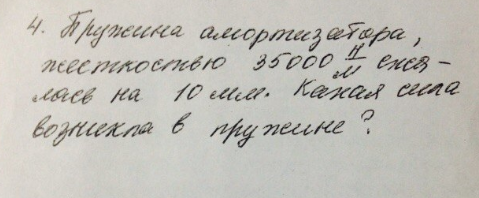 4. Пружина амортизатора,
жесткостью 35000 Н/М сжа-
лась на 10 мм. Какая сила
возникла в пружине?